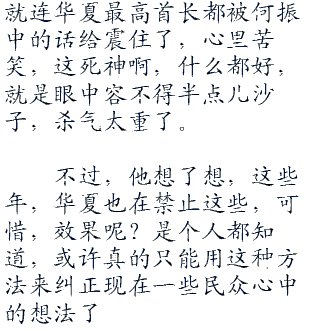 就连华夏最高首长都被何振
中的话给震住了，心里苦
笑，这死神啊，什么都好，
就是眼中容不得半点儿沙
子，杀气太重了。
不过，他想了想，这些
年，华夏也在禁止这些，可
惜，效果呢？是个人都知
道，或许真的只能用这种方
法来纠正现在一些民众心中
的想法了